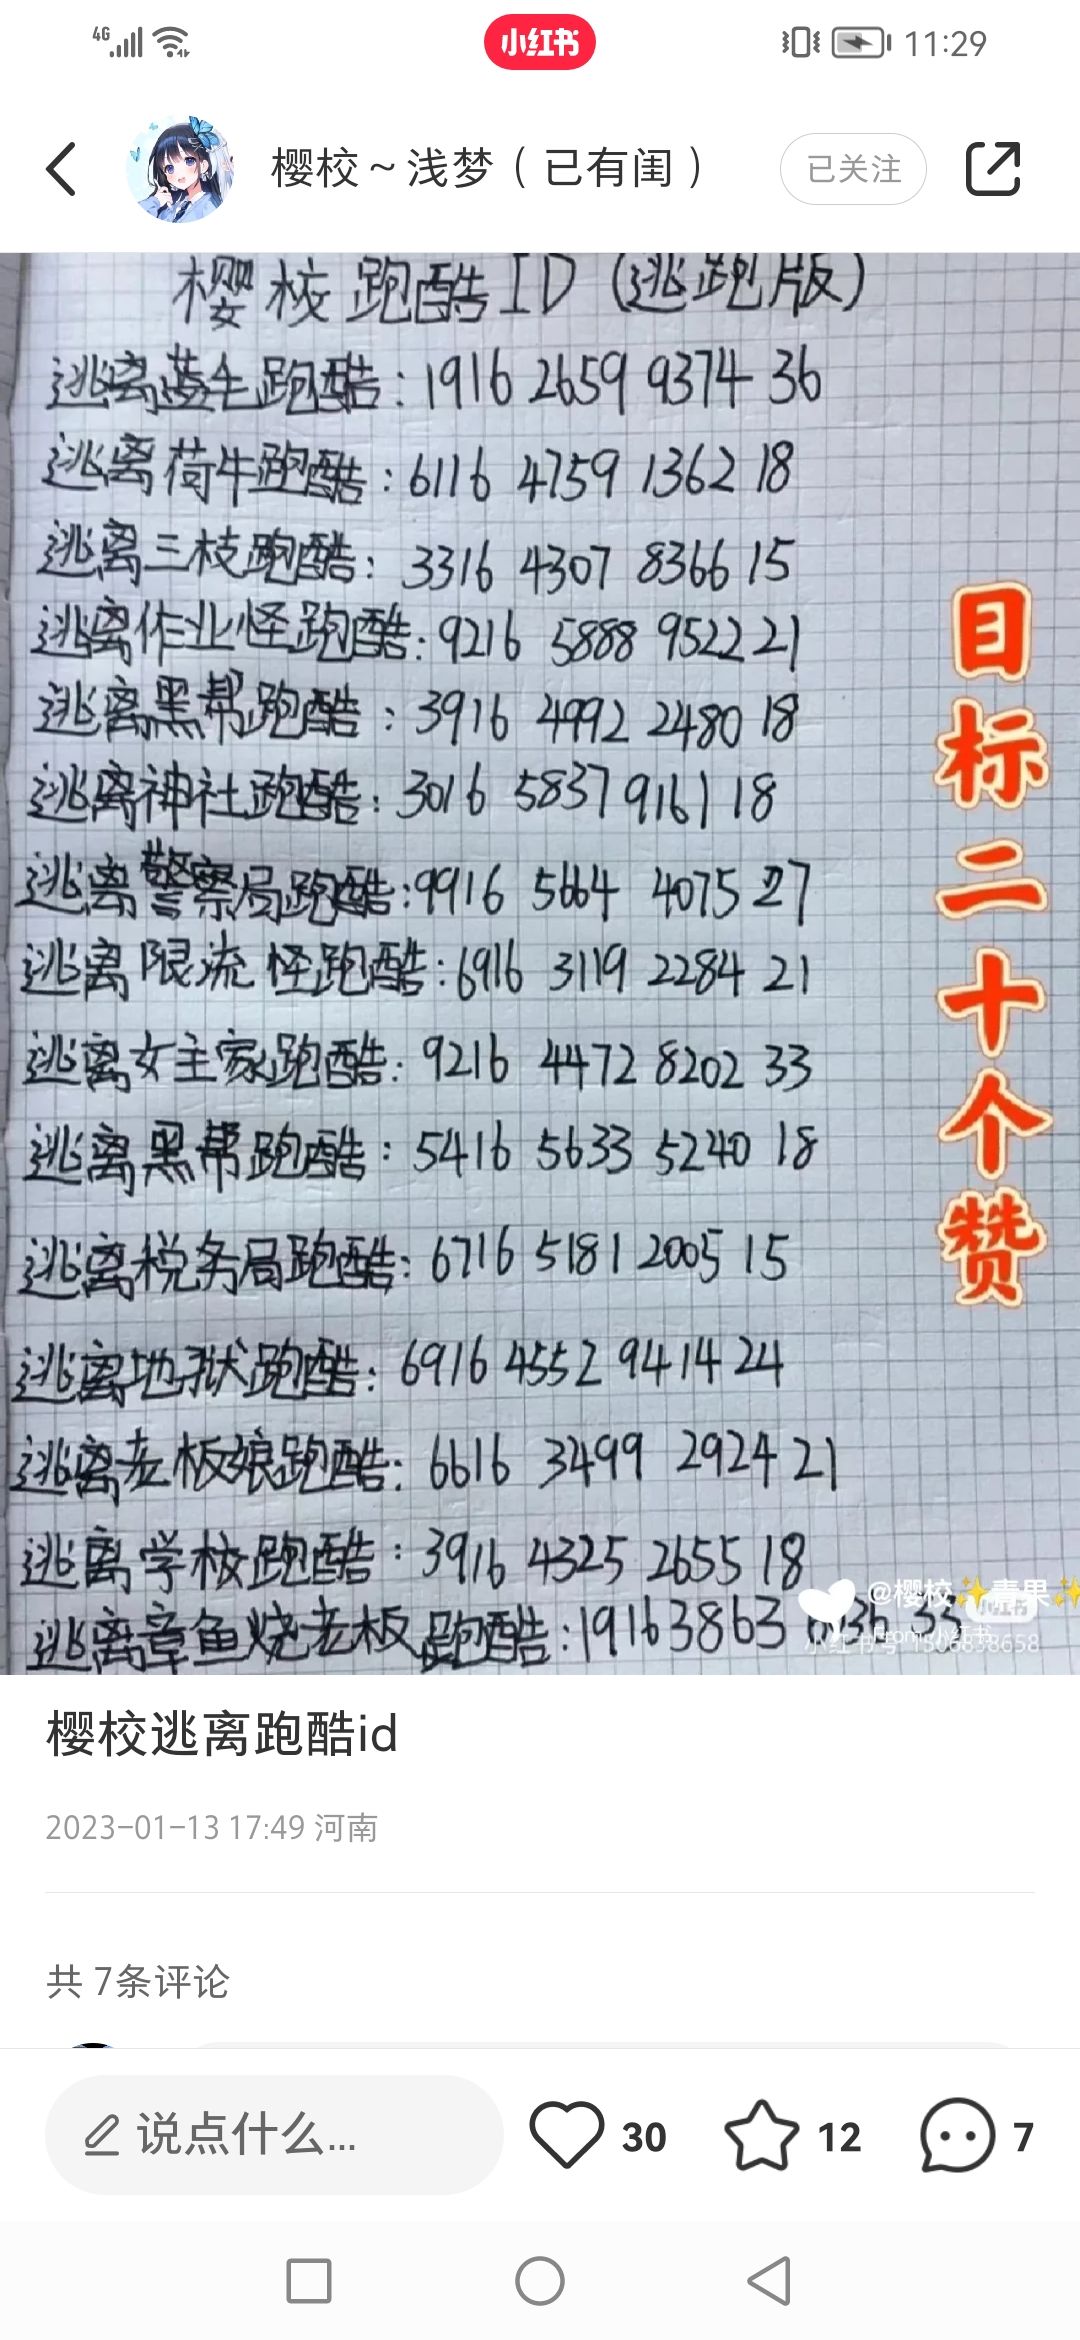 4G
小红书
11:29
樱校～浅梦（已有闺）
已关注
樱校跑酷ID(逃跑版)
逃离蓝毛跑酷:1916 2659 9374 36
逃离荷牛跑酷:6116 4759 1362 18
逃离三枝跑酷:3316 4307 8366 15
逃离作业怪跑酷:9216 5888 9522 21
逃离黑帮跑酷:3916 4992 2480 18
逃离神社跑酷:3016 5837 9161 18
逃离警察局跑酷:9916 5664 4075 27
逃离限流怪跑酷:6916 3119 2284 21
逃离女主家跑酷:9216 4472 8202 33
逃离黑帮跑酷:5416 5633 5240 18
逃离税务局跑酷:6716 5181 2005 15
逃离地狱跑酷:6916 4552 9414 24
逃离老板娘跑酷:6616 3499 2924 21
逃离学校跑酷:3916 4325 2655 18
逃离章鱼烧老板跑酷:1916 3863 33
目标二十个赞
@樱校✨青果✨
樱校逃离跑酷id
2023-01-13 17:49 河南
共 7条评论
说点什么...
30
12
7